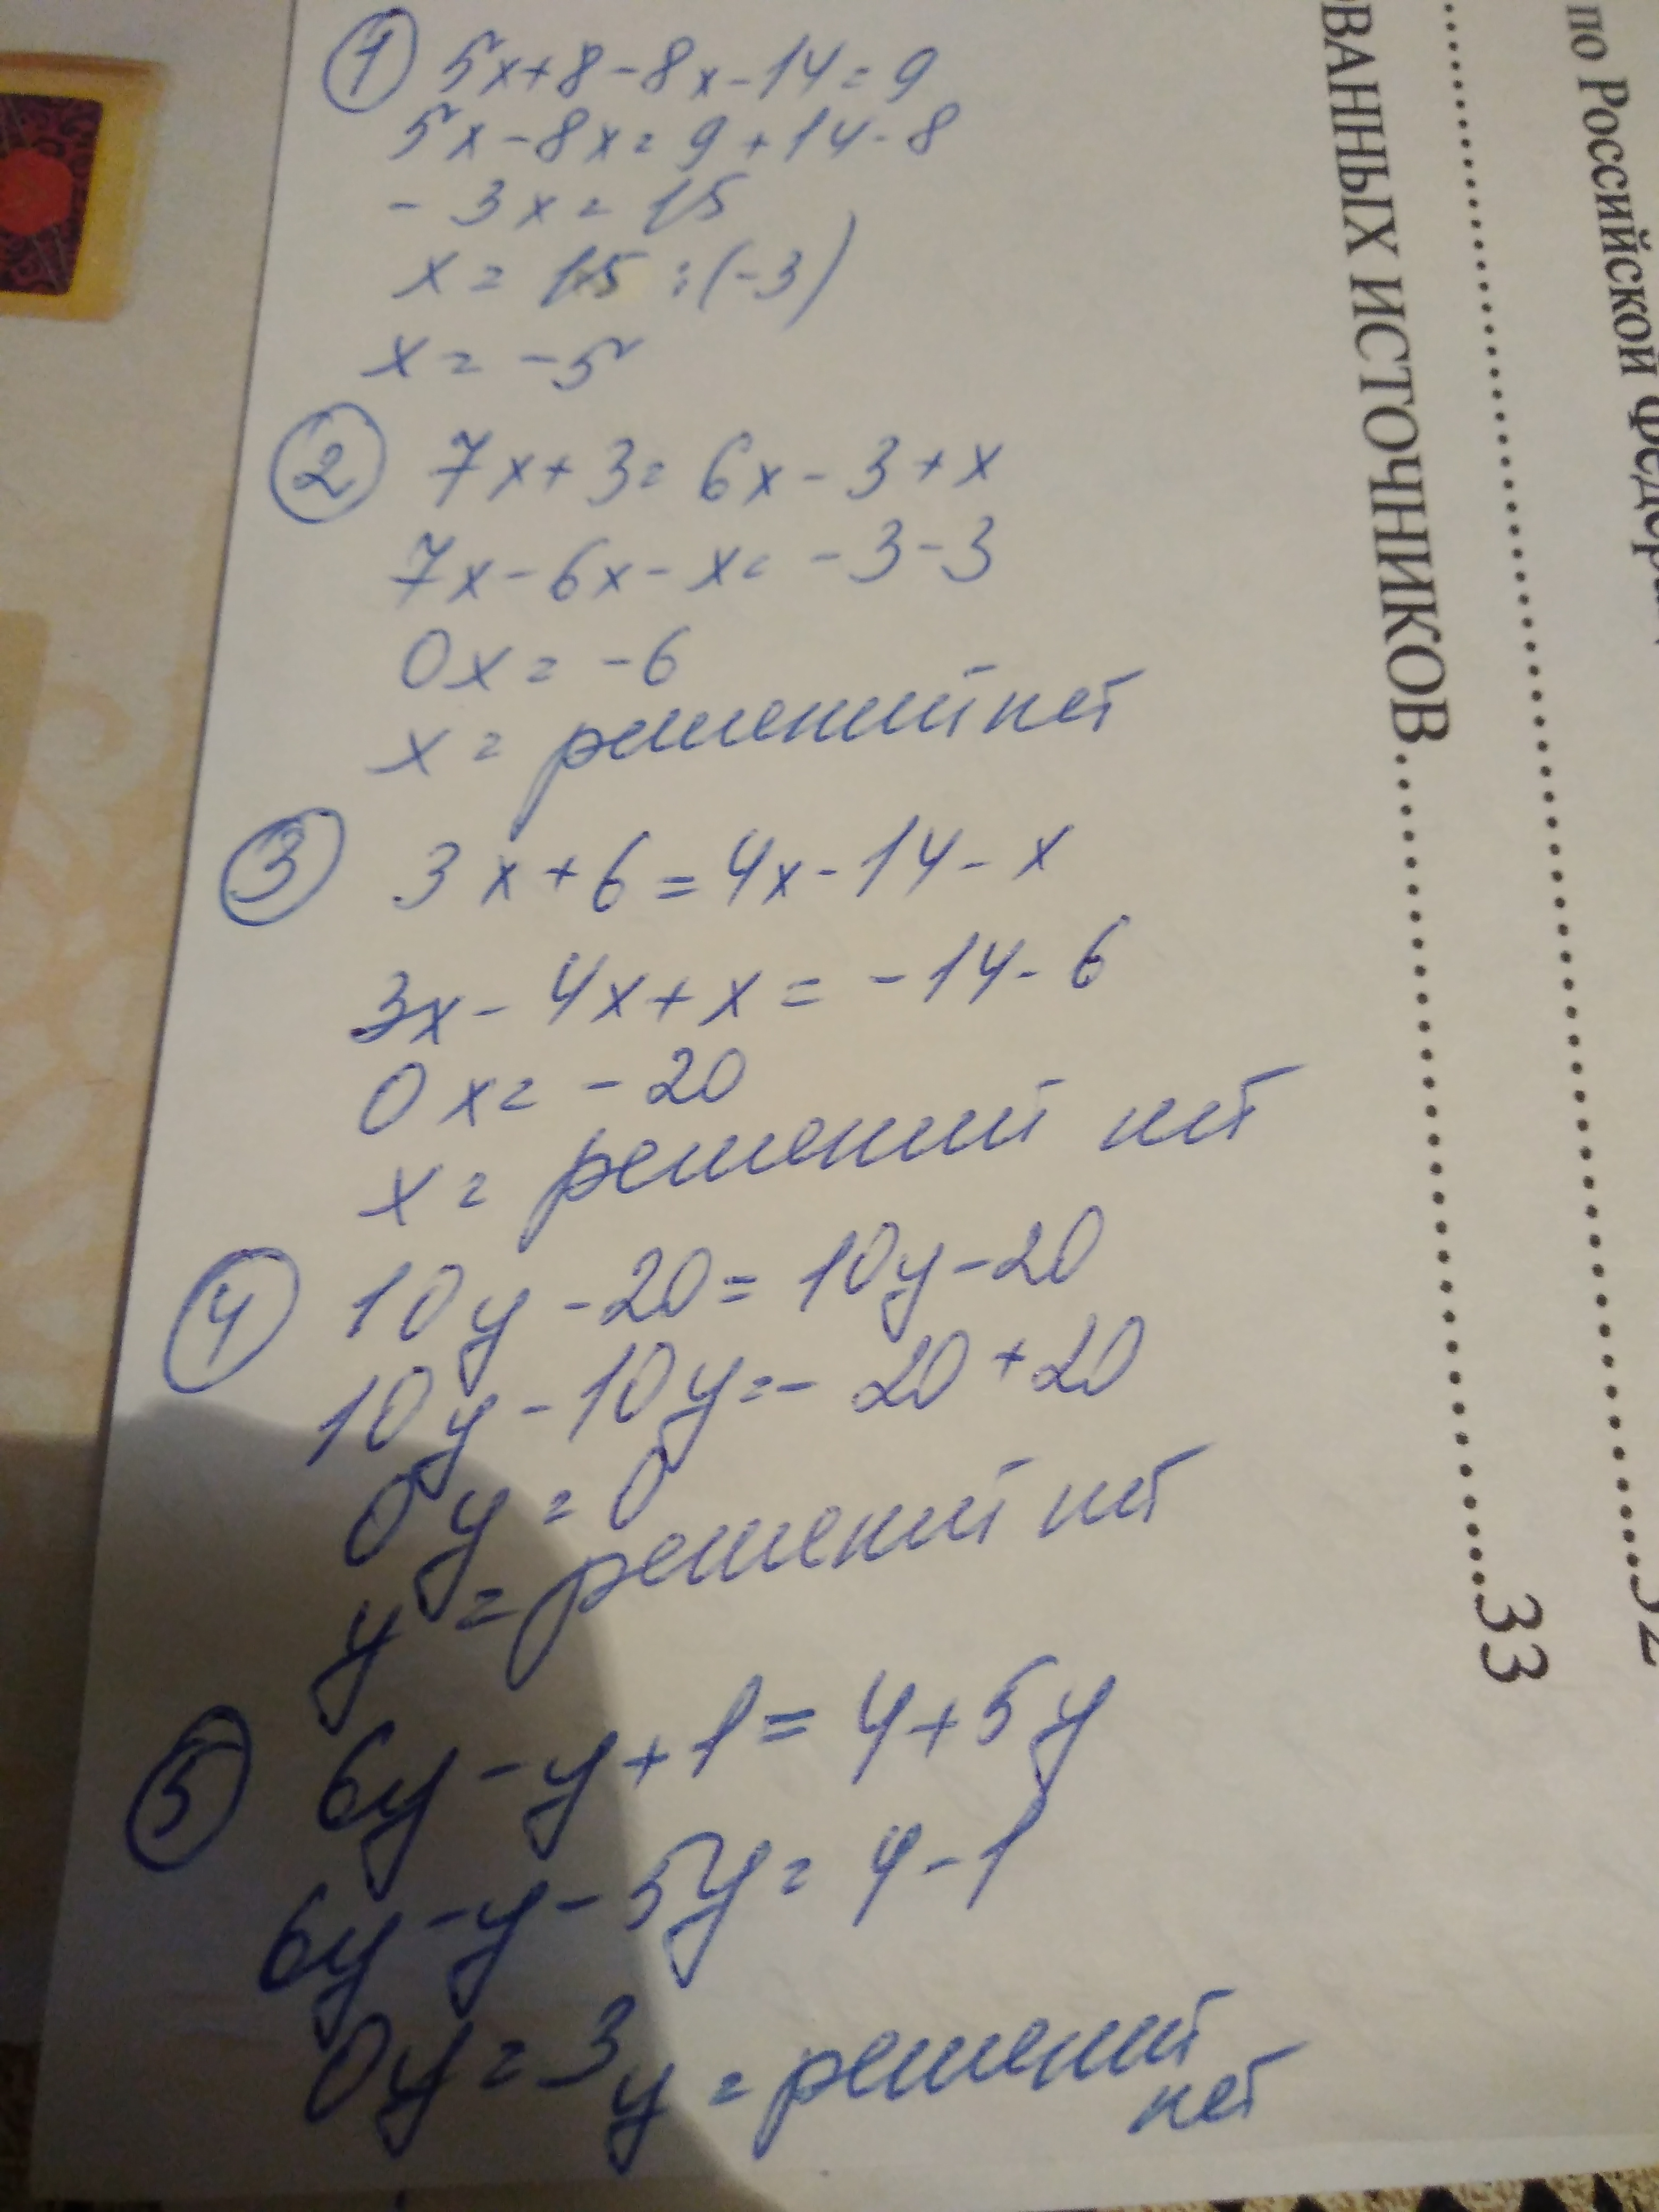 ① 5x+8-8x-14=9
5x-8x=9+14-8
-3x=15
x=15:(-3)
x=-5
② 7x+3=6x-3+x
7x-6x-x=-3-3
0x=-6
x=решений нет
③ 3x+6=4x-14-x
3x-4x+x=-14-6
0x=-20
x=решений нет
④ 10y-20=10y-20
10y-10y=-20+20
0y=0
y=решений нет
⑤ 6y-y+1=4+5y
6y-y-5y=4-1
0y=3 y=решений
нет
ОВАННЫХ ИСТОЧНИКОВ..........33
по Российской